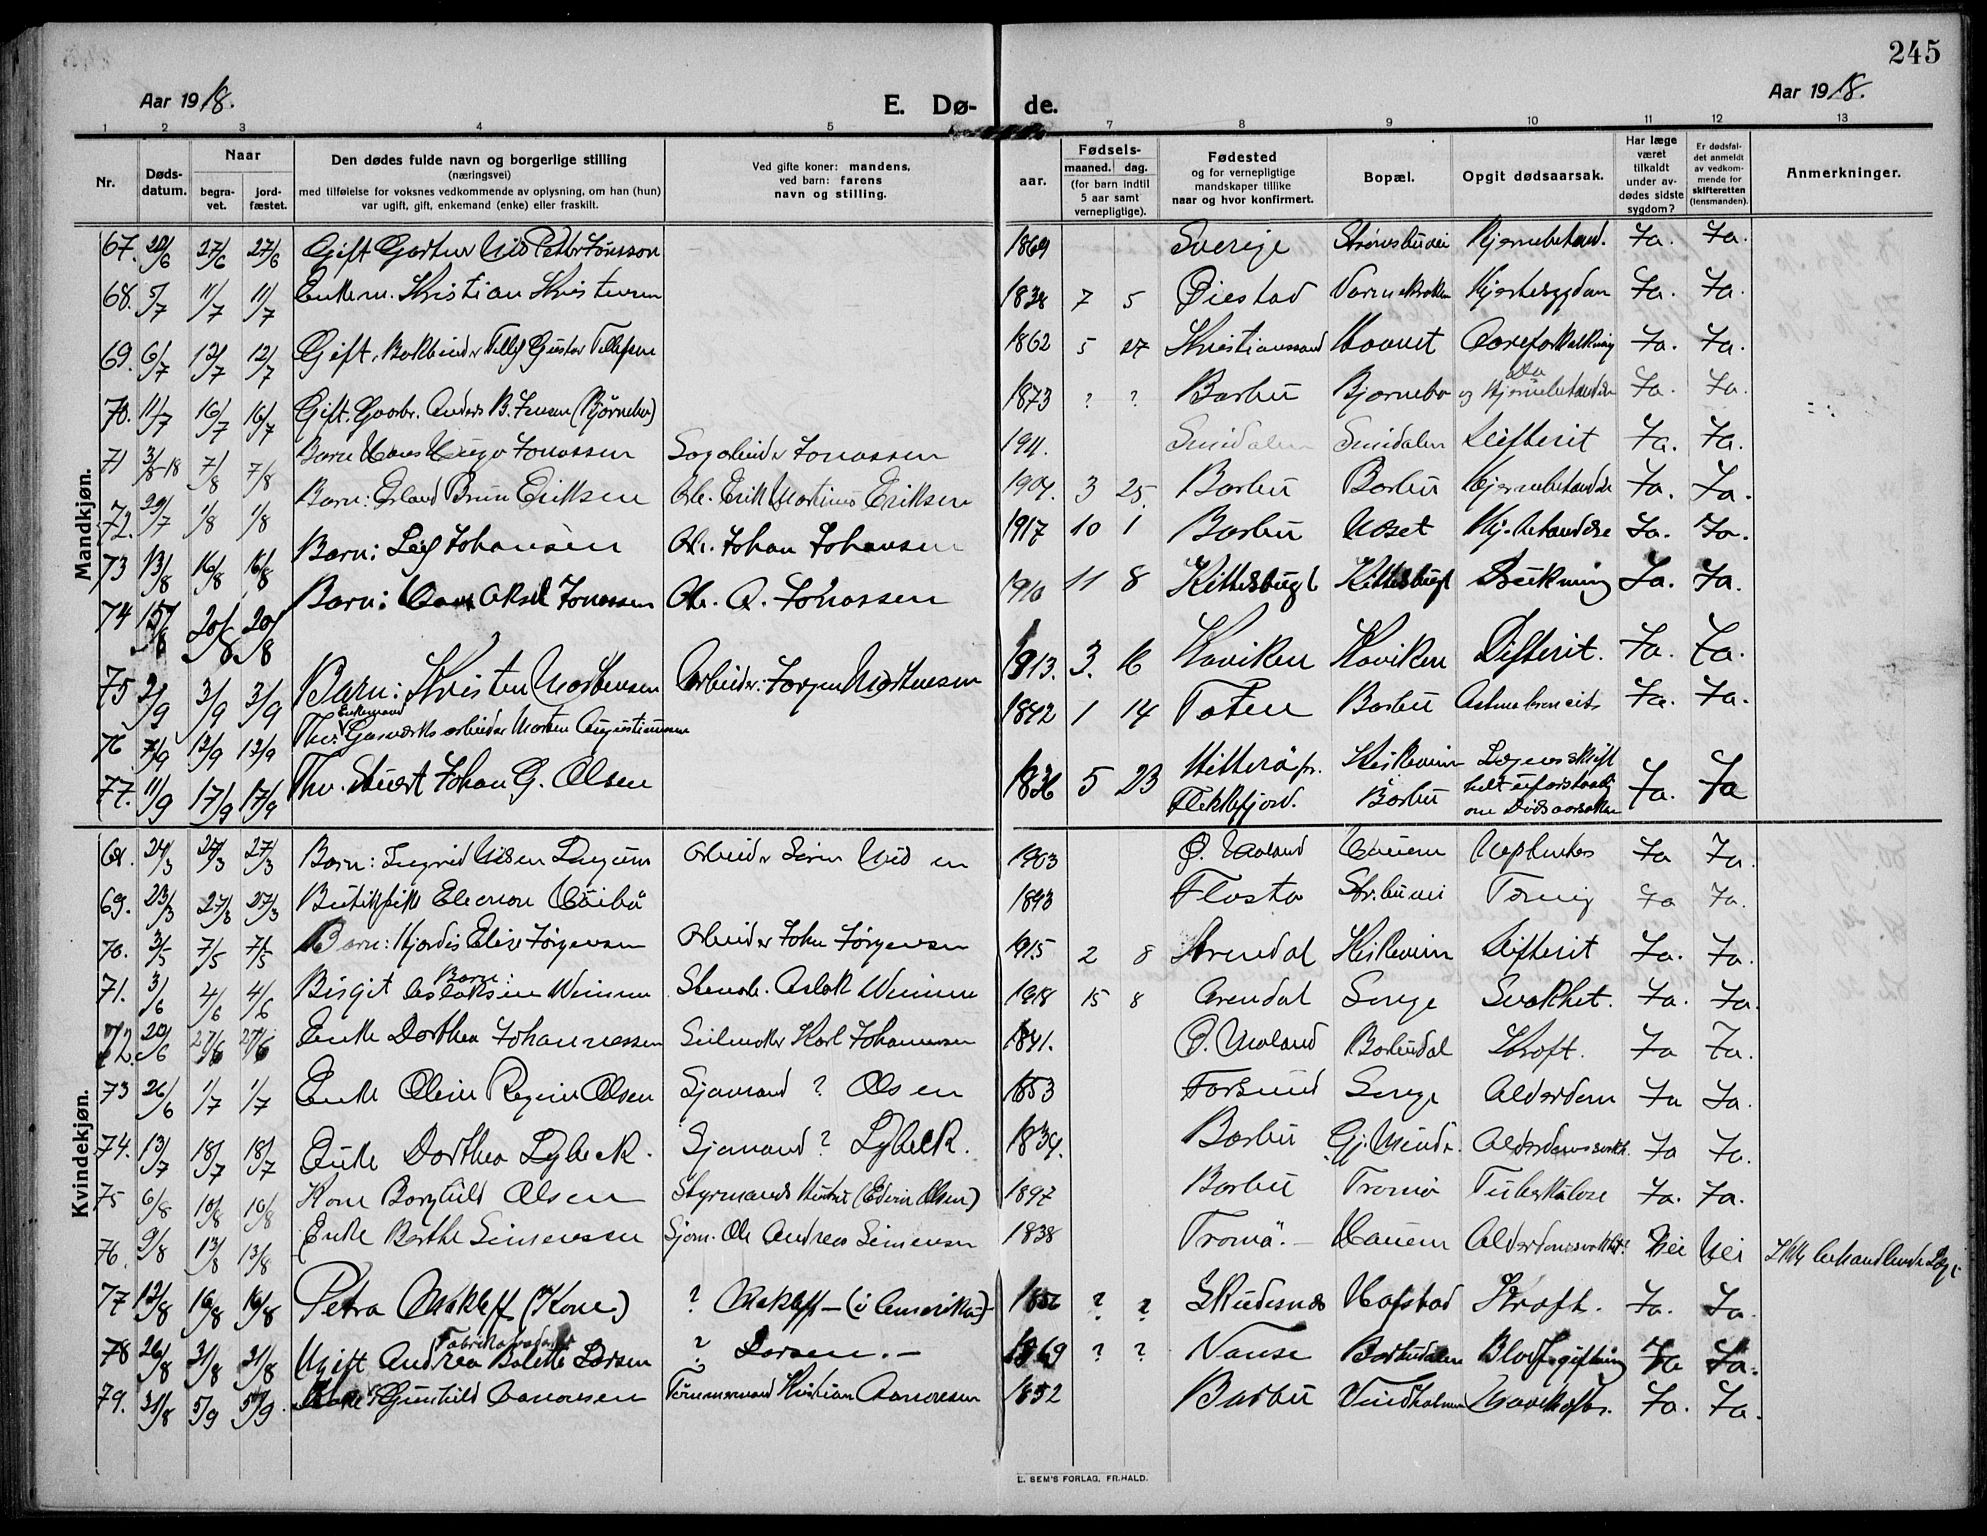 245
Aar 1918.
E. Dø-de.
Aar 1918.
1 2 3 4 5 7 8 9 10 11 12 13
Nr.
Døds-datum.
Naar
begra-vet.
jord-fæstet.
Den dødes fulde navn og borgerlige stilling
(næringsvei)
med tilføielse for voksnes vedkommende av oplysning, om han (hun)
var ugift, gift, enkemand (enke) eller fraskilt.
Ved gifte koner: mandens,
ved barn: farens
navn og stilling.
aar.
Fødsels-
maaned. dag.
(for barn indtil
5 aar samt
vernepligtige).
Fødested
og for vernepligtige
mandskaper tillike
naar og hvor konfirmert.
Bopæl.
Opgit dødsaarsak.
Har læge
været
tilkaldt
under av-
dødes sidste
sygdom?
Er dødsfal-
det anmeldt
av vedkom-
mende for
skifteretten
(lensmanden).
Anmerkninger.
Mandkjøn.
67. 20/6 27/6 27/6 Gift Gartner Nils Petter Jonsson 1869 Sverige Strømsbuvei Hjernebetænd. Ja. Ja.
68. 5/7 11/7 11/7 Enkem. Kristian Kristensen 1838 7 5 Øiestad Hjertesygdom Ja. Ja.
69. 6/7 12/7 12/7 Gift. Bokbinder Tellef Gustav Tellefsen 1862 5 27 Kristianssand Aareforkalkning Ja. Ja.
70. 11/7 16/7 16/7 Gift. Gaabr. Anders B. Jensen (Bjørnebo) 1873 ? ? Barbu Bjørnebo og Hjernebetændelse Ja. Ja.
71 3/8-18 7/8 7/8 Barn Hans Hugo Jonassen Sagarbeider Jonassen 1911. Songdalen Difterit Ja. Ja.
72. 29/7 1/8 1/8 Barn: Erland Brun Eriksen Arb. Erik Martinus Eriksen 1907. 3 25. Barbu Barbu Hjernebetændelse Ja. Ja.
73 13/8 16/8 16/8 Barn: Leif Johansen Arb. Johan Johansen 1917 10 1 Barbu Hj.betændelse Ja. Ja.
74 15/8 20/8 20/8 Barn: Hans Aksel Jonassen Arb. A. Jonassen 1910 11 8 Kittelsbugt Kittelsbugt Drukning Ja. Ja.
75 2/9 3/9 3/9 Barn: Kristen Mortensen Arbeider: Jørgen Mortensen 1913. 3. 16 Kaviken Kaviken Difterit. Ja. Ja.
Enkemand
76 7/9 12/9 12/9 Thv. Gasverksarbeider Morten Augustiniussen 1842 1 14 Toten Barbu Ja. Ja.
77. 11/9 17/9 17/9 Thv. Stuert Johan G. Olsen 1836 5 23 Hitterö pr. Flekkefjord. Barbu Lægens skrift helt uforstaaelig om Dødsaarsaken Ja. Ja
Kvindekjøn.
68. 24/3 27/3 27/3 Barn: Ingrid Nilsen Langum 1903 Ø. Moland Ja Ja.
69. 23/3 27/3 27/3 Butikpike Eleonore 1893 Flosta Str.buvei Tæring Ja Ja.
70. 3/5 7/5 7/5 Barn: Hjørdis Elise Jørgensen Arbeider John Jørgensen 1915 2 8 Arendal Difterit Ja. Ja.
Barn:
71. 3/6 4/6 4/6 Birgit Aslaksen Aslak 1918 15 8 Arendal Songe Svakhet. Ja. Ja.
72. 20/6 27/6 27/6 Enke Dorthea Johannessen Seilmaker Karl Johannessen 1841. Ø. Moland Barbudal Kræft. Ja Ja.
73 26/6 1/7 1/7 Enke Oline Regine Olsen Sjømand ? Olsen 1853 Farsund Songe Alderdom Ja Ja.
74. 13/7 18/7 18/7 Enke Dorthea Lybeck. Sjømand ? Lybeck. 1834. Barbu Alderdomssvakh. Ja Ja.
75 6/8 10/8 10/8 Kone Borghild Olsen Styrmands Hustru (Edvin Olsen) 1897 Barbu Tromø Tuberkulose Ja. Ja.
76. 9/8 13/8 13/8 Enke Berthe Simonsen Sjøm. Ole Andreas Simonsen 1838 Tromö. – Alderdomssvakhet Nei Nei Ikke behandlende Læge
77 12/8 16/8 16/8 Petra Makleff (Kone) ? Makleff – (i Amerika) – 1856 ? ? Skudesnæs Hafstad Kræft. Ja. Ja.
Fabrikarbeider
78 26/8 31/8 31/8 Ugift Andrea Bolette Larsen ? Larsen. – 1869 ? ? Vanse Barbudalen Blodforgiftning Ja Ja.
79. 31/8 5/9 5/9. Gunhild Aanonsen Tømmermand Kristian Aanonsen 1852 Barbu Vindholmen Ja. Ja.
E. SEM'S FORLAG, FR.HALD.